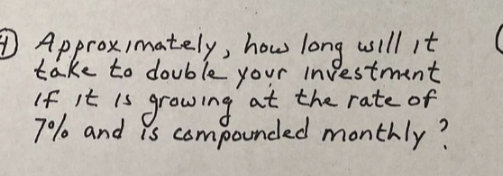 4) Approximately, how long will it
take to double your investment
if it is growing at the rate of
7% and is compounded monthly?